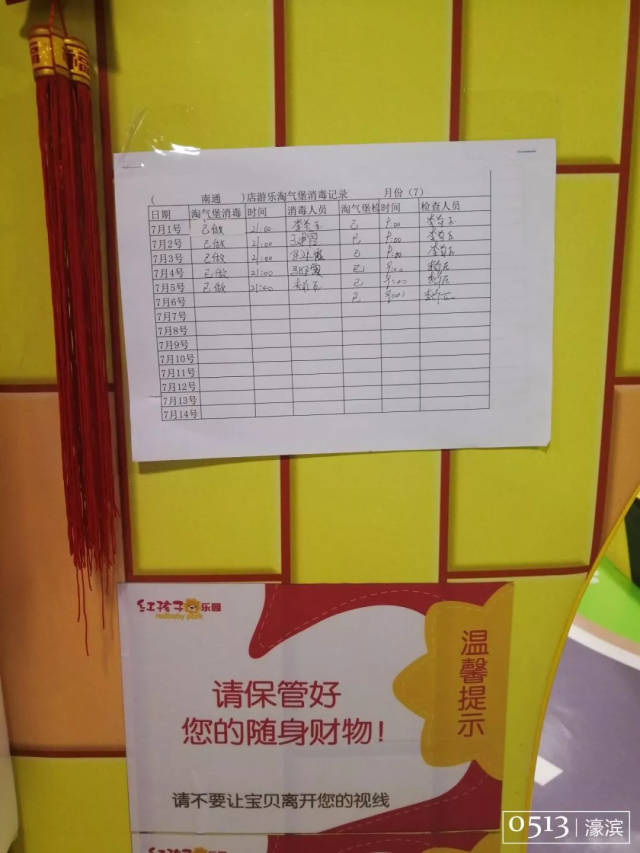 ( 南通 )店游乐淘气堡消毒记录 月份（7）
日期 淘气堡消毒 时间 消毒人员 淘气堡检 时间 检查人员
7月1号 已做 21:00 已 9:00
7月2号 已做 21:00 已 9:00
7月3号 已做 21:00 已 9:00
7月4号 已做 21:00 已 9:00
7月5号 已做 21:00 已 9:00
7月6号 已 9:00
7月7号
7月8号
7月9号
7月10号
7月11号
7月12号
7月13号
7月14号
红孩子乐园
redbaby park
温馨提示
请保管好
您的随身财物！
请不要让宝贝离开您的视线
红孩子乐园
0513 濠滨